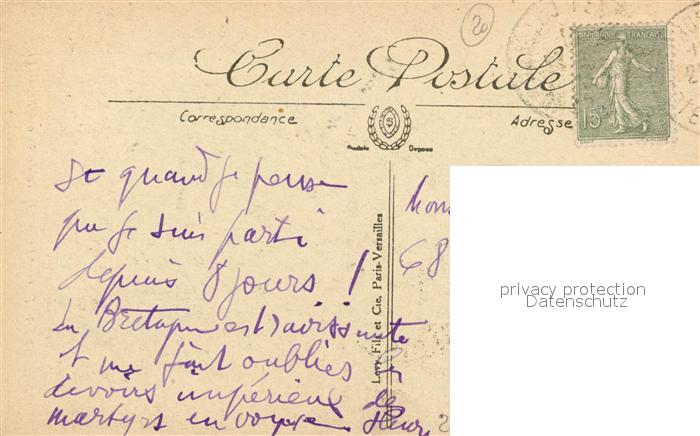 20
Carte Postale
REPUBLIQUE FRANÇAISE
15c
Correspondance Adresse
Modèle Déposé
et quand je pense
que je suis parti
depuis 8 jours !
La Bretagne est ravissante
et me fait oublier les
devoirs impérieux de
martyrs en
Levy Fils et Cie, Paris-Versailles
Mons
68
privacy protection
Datenschutz